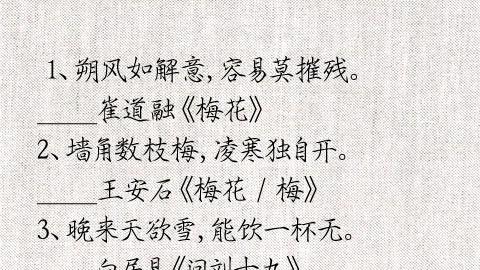 1、朔风如解意,容易莫摧残。
____崔道融《梅花》
2、墙角数枝梅,凌寒独自开。
____王安石《梅花 / 梅》
3、晚来天欲雪,能饮一杯无。
____白居易《问刘十九》